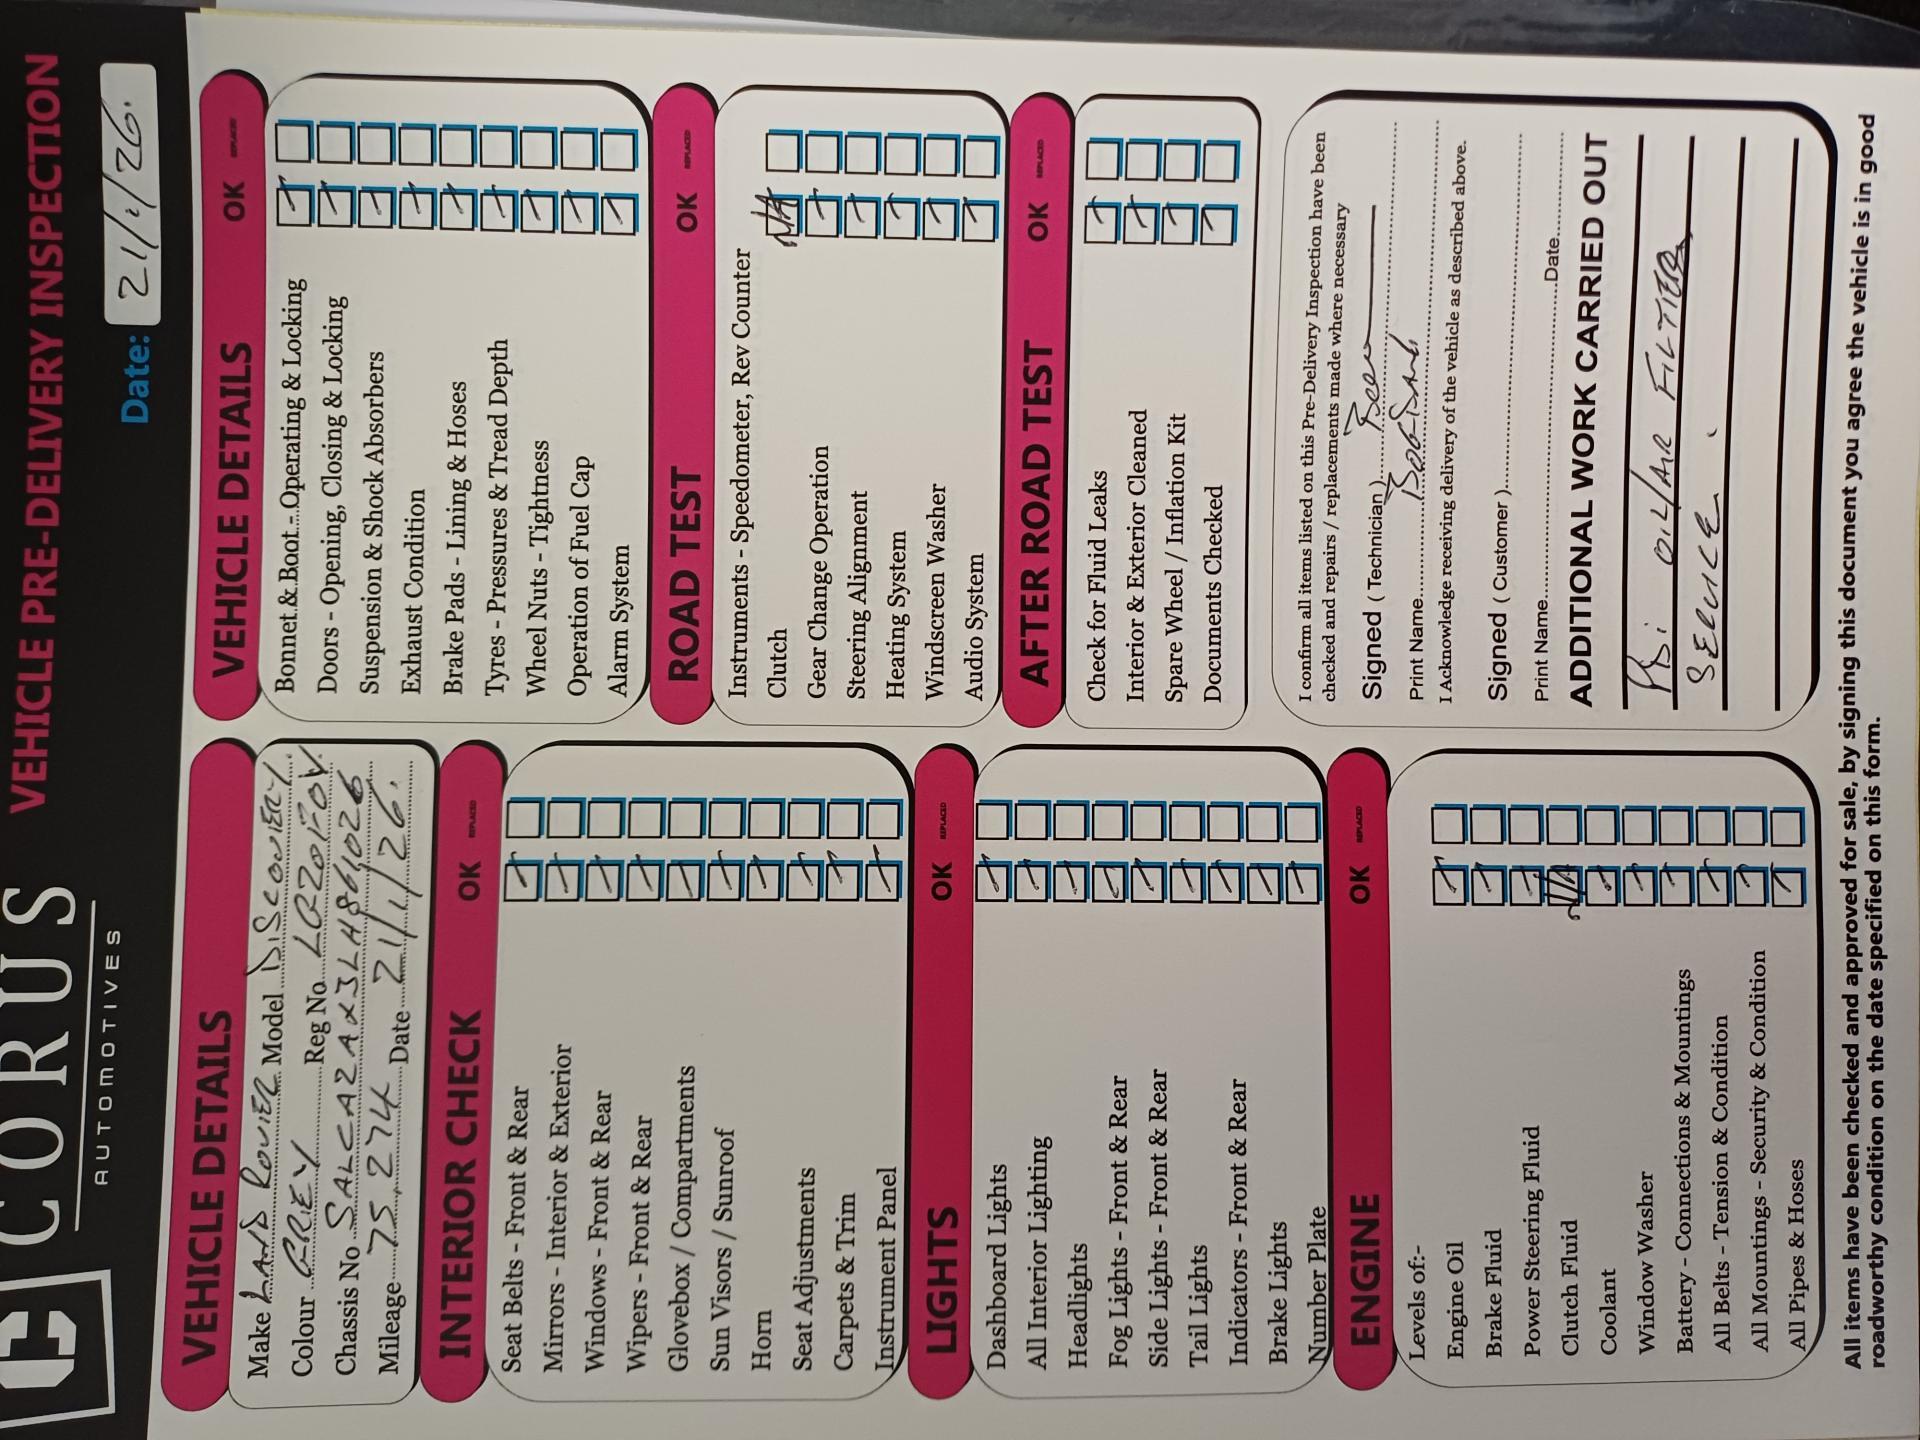 CORUS
AUTOMOTIVES
VEHICLE PRE-DELIVERY INSPECTION
Date: 21/1/26.
VEHICLE DETAILS
Make LAND ROVER Model DISCOVERY.
Colour GREY Reg No LG20
Chassis No SALCA2AX3LH861026
Mileage 75,274 Date 21/1/26.
INTERIOR CHECK OK REPLACED
Seat Belts - Front & Rear
Mirrors - Interior & Exterior
Windows - Front & Rear
Wipers - Front & Rear
Glovebox / Compartments
Sun Visors / Sunroof
Horn
Seat Adjustments
Carpets & Trim
Instrument Panel
LIGHTS OK REPLACED
Dashboard Lights
All Interior Lighting
Headlights
Fog Lights - Front & Rear
Side Lights - Front & Rear
Tail Lights
Indicators - Front & Rear
Brake Lights
Number Plate
ENGINE OK REPLACED
Levels of:-
Engine Oil
Brake Fluid
Power Steering Fluid
Clutch Fluid N/A
Coolant
Window Washer
Battery - Connections & Mountings
All Belts - Tension & Condition
All Mountings - Security & Condition
All Pipes & Hoses
VEHICLE DETAILS OK REPLACED
Bonnet & Boot - Operating & Locking
Doors - Opening, Closing & Locking
Suspension & Shock Absorbers
Exhaust Condition
Brake Pads - Lining & Hoses
Tyres - Pressures & Tread Depth
Wheel Nuts - Tightness
Operation of Fuel Cap
Alarm System
ROAD TEST OK REPLACED
Instruments - Speedometer, Rev Counter
Clutch N/A
Gear Change Operation
Steering Alignment
Heating System
Windscreen Washer
Audio System
AFTER ROAD TEST OK REPLACED
Check for Fluid Leaks
Interior & Exterior Cleaned
Spare Wheel / Inflation Kit
Documents Checked
I confirm all items listed on this Pre-Delivery Inspection have been
checked and repairs / replacements made where necessary
Signed ( Technician )
Print Name
I Acknowledge receiving delivery of the vehicle as described above.
Signed ( Customer )
Print Name Date
ADDITIONAL WORK CARRIED OUT
PDI OIL/AIR FILTER
SERVICE.
All items have been checked and approved for sale, by signing this document you agree the vehicle is in good
roadworthy condition on the date specified on this form.